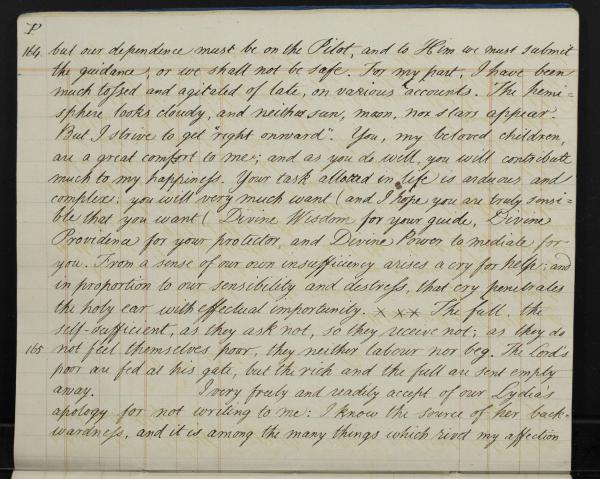 P
164 but our dependence must be on the Pilot, and to Him we must submit
the guidance, or we shall not be safe. For my part, I have been
much tossed and agitated of late, on various accounts. The hemi=
sphere looks cloudy, and neither sun, moon, nor stars appear.
But I strive to get "right onward". You, my beloved children,
are a great comfort to me; and as you do well, you will contribute
much to my happiness. Your task allotted in life is arduous and
complex: you will very much want (and I hope you are truly sensi=
ble that you want ( Divine Wisdom for your guide, Divine
Providence for your protector, and Divine Power to mediate for
you. From a sense of our own insufficiency arises a cry for help; and
in proportion to our sensibility and distress, that cry penetrates
the holy ear with effectual importunity. x x x The full, the
self-sufficient, as they ask not, so they receive not; as they do
165 not feel themselves poor, they neither labour nor beg. The Lord's
poor are fed at his gate, but the rich and the full are sent empty
away. I very freely and readily accept of our Lydia's
apology for not writing to me: I know the source of her back=
wardness, and it is among the many things which rivet my affection